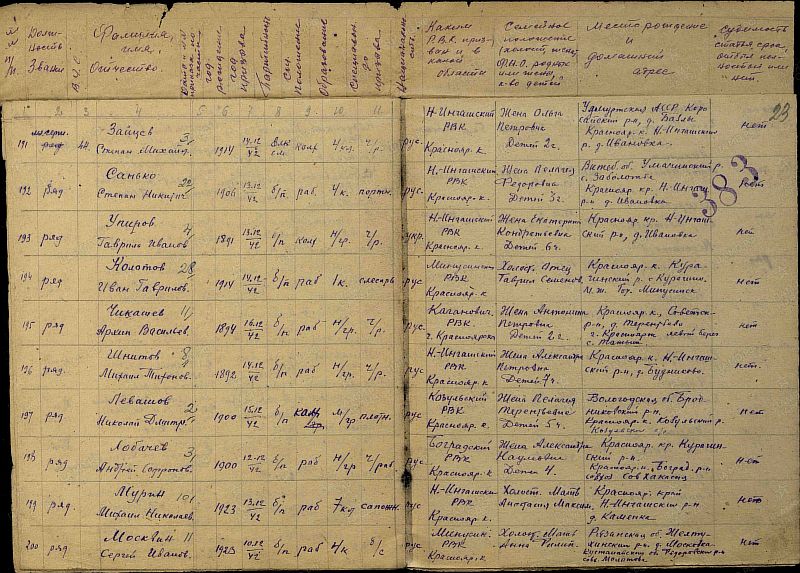 №№ п/п
Долж-ность Звание
В.У.С.
Фамилия, имя, Отчество.
год рождения
год призыва
Партийный
соц. положение
образование
специальн. до призыва
Националь-ность.
Каким Р.В.К. призван и в какой области
Семейное положение (холост, женат) Ф.И.О. родит. или жены, к-во детей
Место рождение и домашний адрес.
Судимость статья срок, отбыл пол-ностью или нет.
1 2. 3 4 5 6 7 8 9 10 11.
23
383
191 44 Зайцев 3/ Степан Михайл. 1914 14.12 42 влк см. колх 4 кл. ч/р. рус. Н-Ингашский РВК Краснояр. к. Жена Ольга Петровна Детей 2г. Удмуртская АССР р-н, д. Краснояр. к. Н-Ингашск. р-н, д. Ивановка. нет
192 ряд Санько 22/ Степан Никит. 1906 13.12 42 б/п раб. 4 к. портн. рус. Н-Ингашский РВК Краснояр. к. Жена Пелагея Федоровна Детей 3г. Витеб. об. р. с. Заболотье Краснояр. кр. Н-Ингаш. р-н д. Ивановка нет
193 ряд 4/ Гаврил Иванов 1891 13.12 42 б/п колх н/гр. ч/р. укр. Н-Ингашский РВК Краснояр. к. Жена Екатерин Кондратьевна Детей 6ч. Краснояр. кр. Н-Ингаш-ский р-н, д. Ивановка нет
194 ряд Колотов 28 Иван Гаврилов. 1914 14.12 42 б/п раб 1 к. слесарь рус Минусинск РВК Краснояр. к Холост. Отец Гаврил Семенов. Краснояр. к. Кура-гинский р. Курагино. М.ж. Гор. Минусинск нет
195 ряд Чикашев 11/ Архип Васильев. 1894 16.12 42 б/п раб н/гр. ч/р. рус. Каганович. РВК. г. Красноярск Жена Антонина Петровна Детей 2 г. Краснояр. к. Советск. р-н, д. Терентьево г. Красноярск левый берег нет
196 ряд. Шнитов 8 Михаил Тихонов. 1892 14.12 42 б/п раб н/гр. ч/р. рус. Н-Ингашский РВК Краснояр. к Жена Александра Петровна Детей 7ч. Краснояр. к. Н-Ингаш-ский р-н, д. нет.
197 ряд. Левашов 2 Николай Дмитр. 1900 15.12 42 б/п м/гр плотн. рус Козульский РВК Краснояр. к. Жена Пелагея Терентьевна Детей 5ч. Вологодская об. р-н. Краснояр. к. Козульский р. нет
198 ряд Лобачев 3/ Андрей Софронов. 1900 12.12 42 б/п раб н/гр ч/раб. рус Боградский РВК Краснояр. к Жена Александра Наумовна Детей 4. Краснояр. кр. Курагин-ский р-н. Краснояр. к. Боград. р-н совхоз Сов. Хакасия нет
199 ряд. Мурин 10/ Михаил Николаев. 1923 13.12 42 б/п раб 7 кл сапожн. рус. Н-Ингашский РВК Краснояр. к Холост. Мать Анастасия Максим. Красноярс. край Н-Ингашский р-н д. Каменка нет
200 ряд Москвин 11 Сергей Иванов. 1923 10.12 42 б/п раб 4/к б/с рус. Минусин. РВК Краснояр. к Холост. Мать Анна Филип. Рязанская об. Желту-хинский р-н. д. Московка Кустанайский об. Федоровский р-н Молотова нет